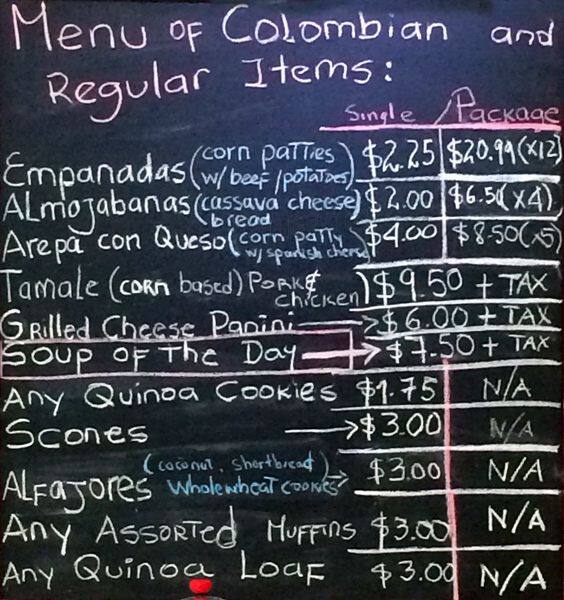 Menu of Colombian and
Regular Items:
Single / Package
Empanadas (corn patties w/ beef/potatoes) $2.25 $20.99 (x12)
Almojabanas (cassava cheese bread $2.00 $6.50 (x4)
Arepa con Queso (corn patty w/ spanish cheese $4.00 $8.50 (x5)
Tamale (corn based) Pork & chicken) $9.50 + TAX
Grilled Cheese Panini → $6.00 + TAX
Soup of the Day → $7.50 + TAX
Any Quinoa Cookies $1.75 N/A
Scones → $3.00 N/A
Alfajores (coconut, shortbread) Wholewheat cookies → $3.00 N/A
Any Assorted Muffins $3.00 N/A
Any Quinoa Loaf $3.00 N/A